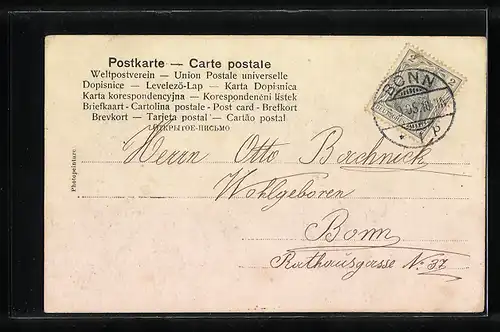 Postkarte — Carte postale
Weltpostverein — Union Postale universelle
Dopisnice — Levelező-Lap — Karta Dopisnica
Karta korespondencyjna — Korespondenční lístek
Briefkaart - Cartolina postale - Post card - Brefkort
Brevkort — Tarjeta postal — Cartão postal
ОТКРЫТОЕ-ПИСЬМО
2 2
BONN
b
Photopeinture
Herrn Otto
Wohlgeboren
Bonn
Rathausgasse No. 37